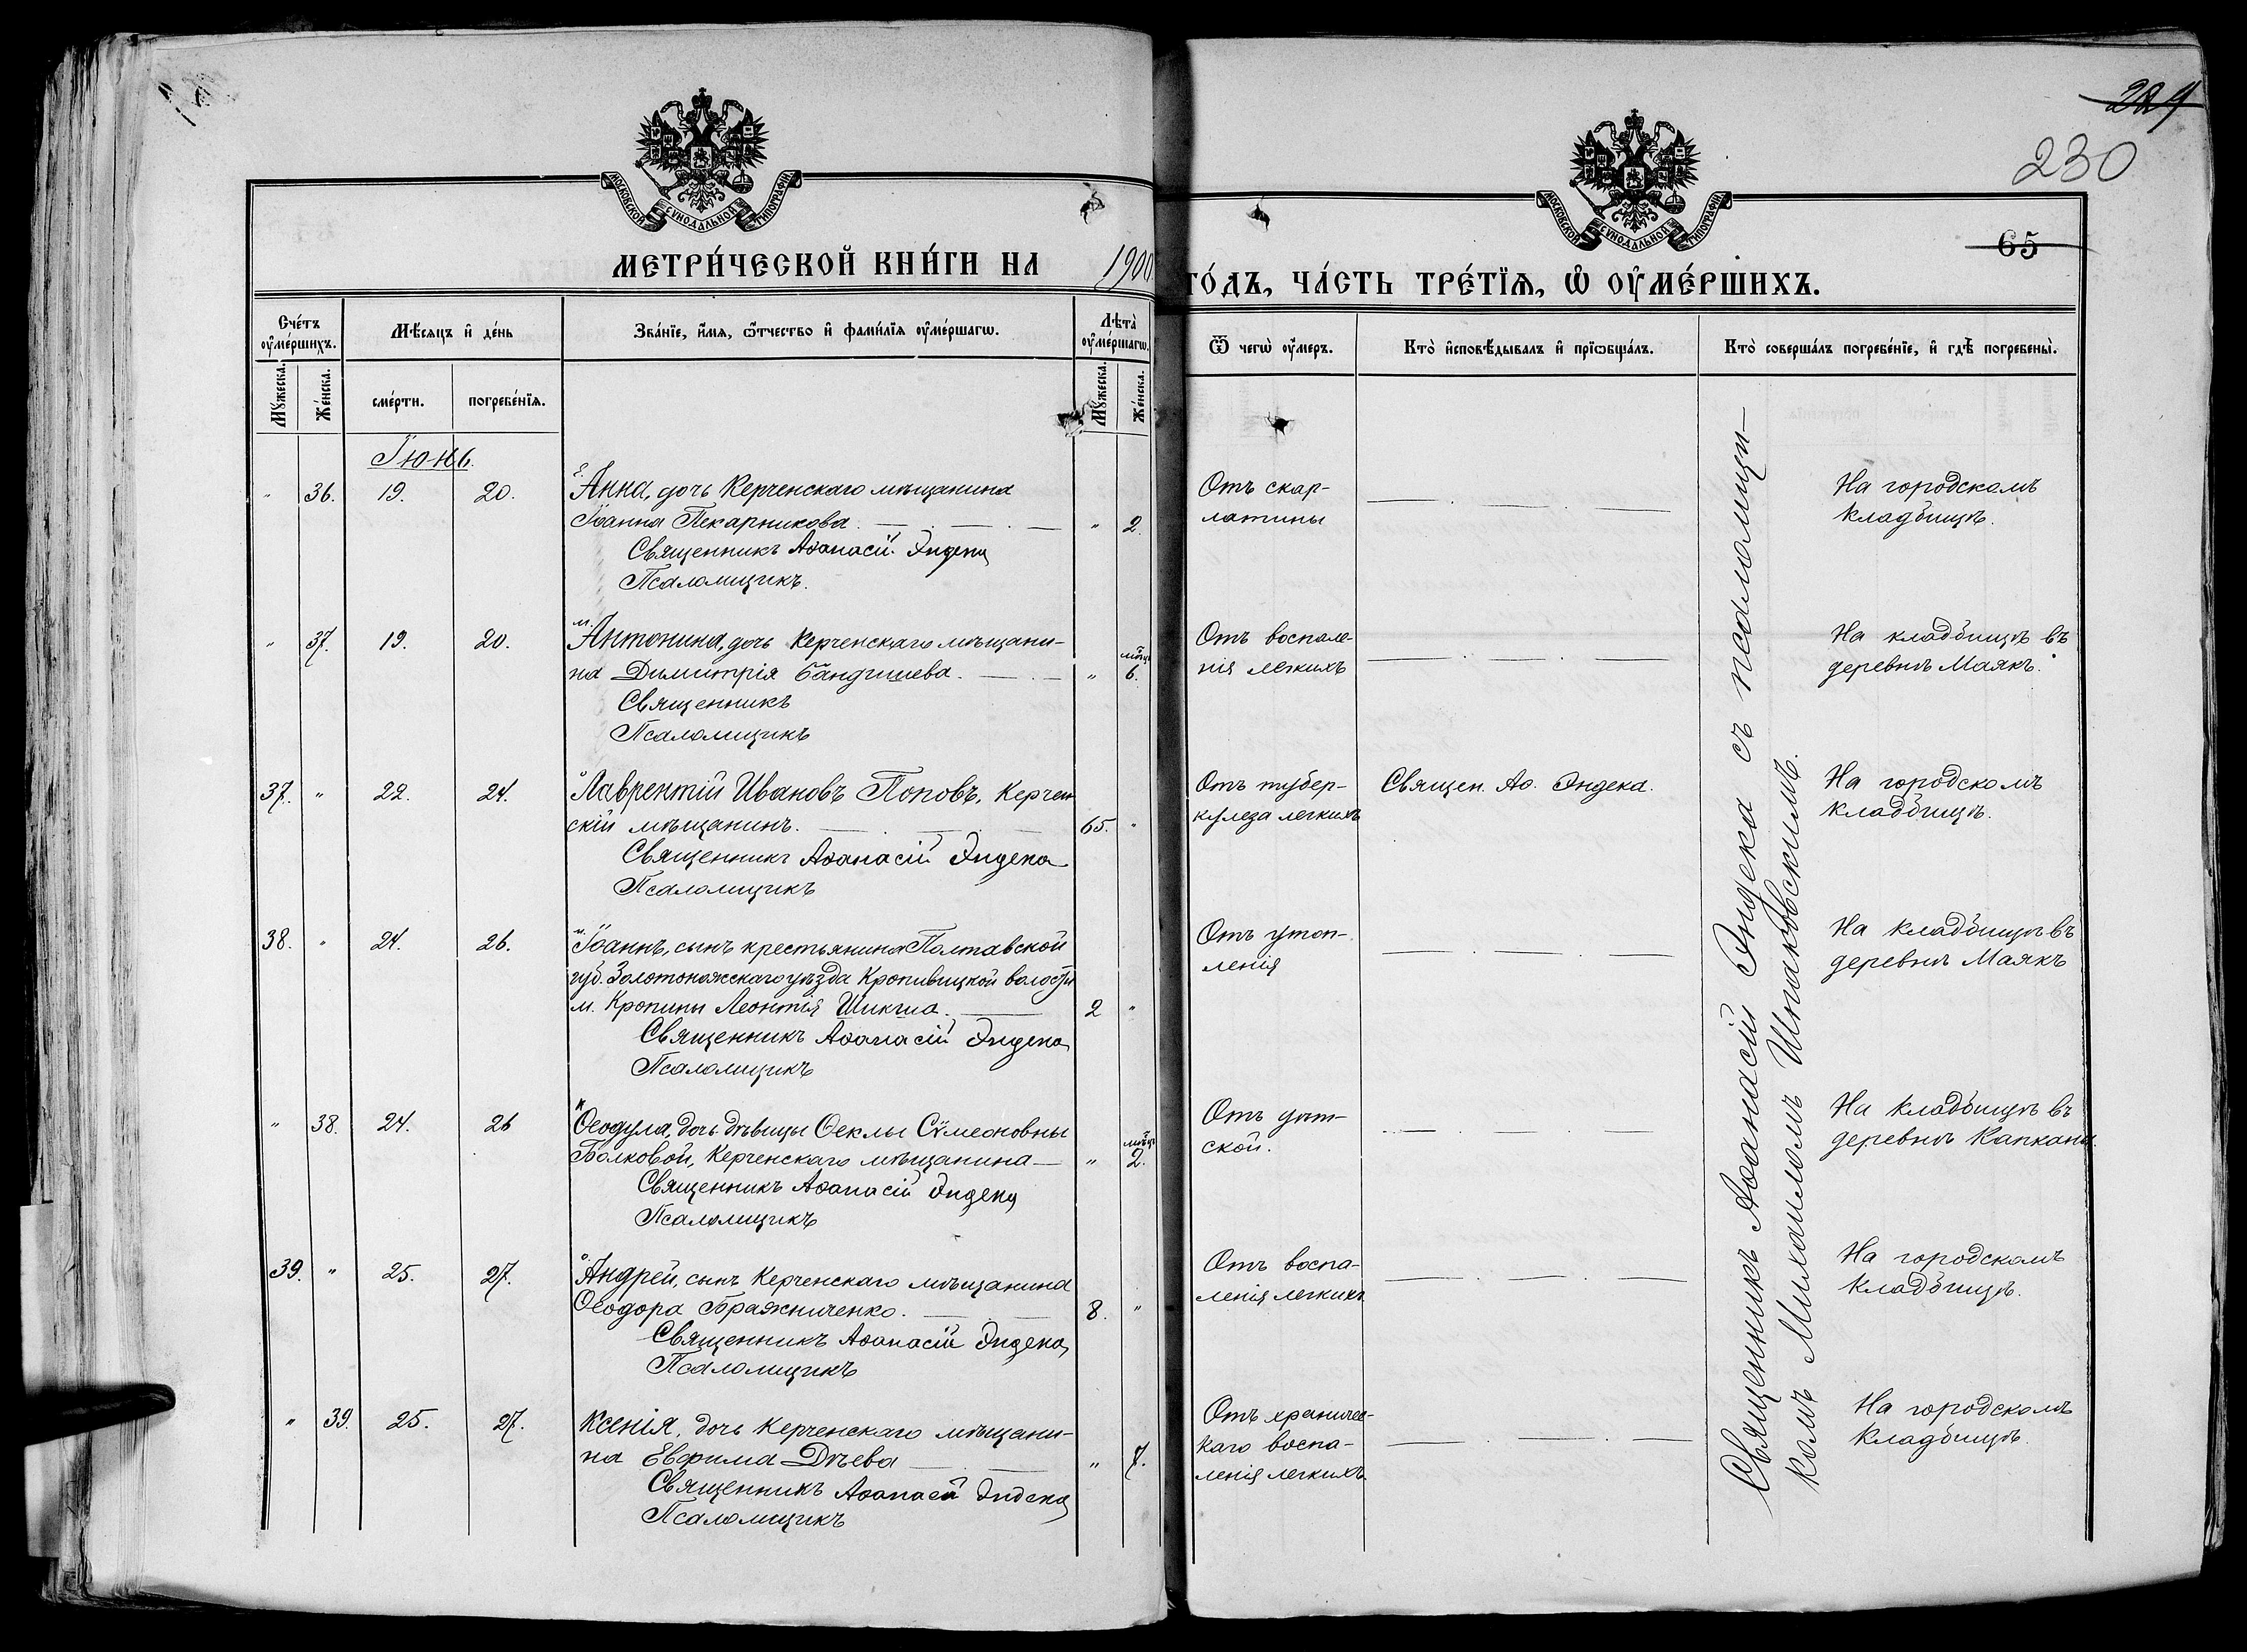 229
230
65
МОСКОВСКОЙ СѴНОДАЛЬНОЙ ТИПОГРАФІИ
МОСКОВСКОЙ СѴНОДАЛЬНОЙ ТИПОГРАФІИ
МЕТРИ́ЧЕСКОЙ КНИ́ГИ НА 1900
ГО́ДЪ, ЧА́СТЬ ТРЕ́ТЇѦ, Ѡ҆ ОУ҆МЕ́РШИХЪ.
Сче́тъ оу҆ме́ршихъ.
Мѣ́сяцъ и҆ де́нь
Зва́нїе, и҆́мя, ѻ҆́тчество и҆ фами́лїя оу҆ме́ршагѡ.
Лѣта̀ оу҆ме́ршагѡ.
Ѿ чегѡ̀ оу҆́меръ.
Кто̀ и҆сповѣ́дывалъ и҆ прїѡбща́лъ.
Кто̀ соверша́лъ погребе́нїе, и҆ гдѣ̀ погребены̀.
Мꙋ́жеска.
Же́нска.
сме́рти.
погребе́нїя.
Мꙋ́жеска.
Же́нска.
Іюнь.
" 36. 19. 20. Анна, дочь Керченскаго мѣщанина
Іоанна Пекарникова. " 2.
Священникъ Аѳанасій Эндека
Псаломщикъ.
Отъ скар-
латины
На городскомъ
кладбищѣ.
" 37. 19. 20. Антонина, дочь Керченскаго мѣщани-
на Димитрія Бандишева. " мѣц. 6.
Священникъ
Псаломщикъ
Отъ воспале-
нія легкихъ
На кладбищѣ въ
деревнѣ Маякъ.
37. " 22. 24. Лаврентій Ивановъ Поповъ, Керчен-
скій мѣщанинъ. 65. "
Священникъ Аѳанасій Эндека
Псаломщикъ
Отъ тубер-
кулеза легкихъ
Священ. Аѳ. Эндека.
На городскомъ
кладбищѣ.
38. " 24. 26. Іоаннъ, сынъ крестьянина Полтавской
губ. Золотоножскаго уѣзда Кропивицкой волости
м. Кропивы Леонтія 2 "
Священникъ Аѳанасій Эндека
Псаломщикъ
Отъ утоп-
ленія
На кладбищѣ въ
деревнѣ Маякъ
" 38. 24. 26 Ѳеодула, дочь дѣвицы Ѳеклы Сѵмеоновны
Волковой, Керченскаго мѣщанина " мѣц. 2.
Священникъ Аѳанасій Эндека
Псаломщикъ
Отъ дѣт-
ской.
На кладбищѣ въ
деревнѣ Капканы.
39. " 25. 27. Андрей, сынъ Керченскаго мѣщанина
Ѳеодора Бражниченко. 8. "
Священникъ Аѳанасій Эндека
Псаломщикъ
Отъ воспа-
ленія легкихъ
На городскомъ
кладбищѣ.
" 39. 25. 27. Ксенія, дочь Керченскаго мѣщани-
на Евфима Дѣева " 7.
Священникъ Аѳанасій Эндека
Псаломщикъ
Отъ хроничес-
каго воспа-
ленія легкихъ
На городскомъ
кладбищѣ.
Священникъ Аѳанасій Эндека съ псаломщи-
комъ Михаиломъ Шпаковскимъ.